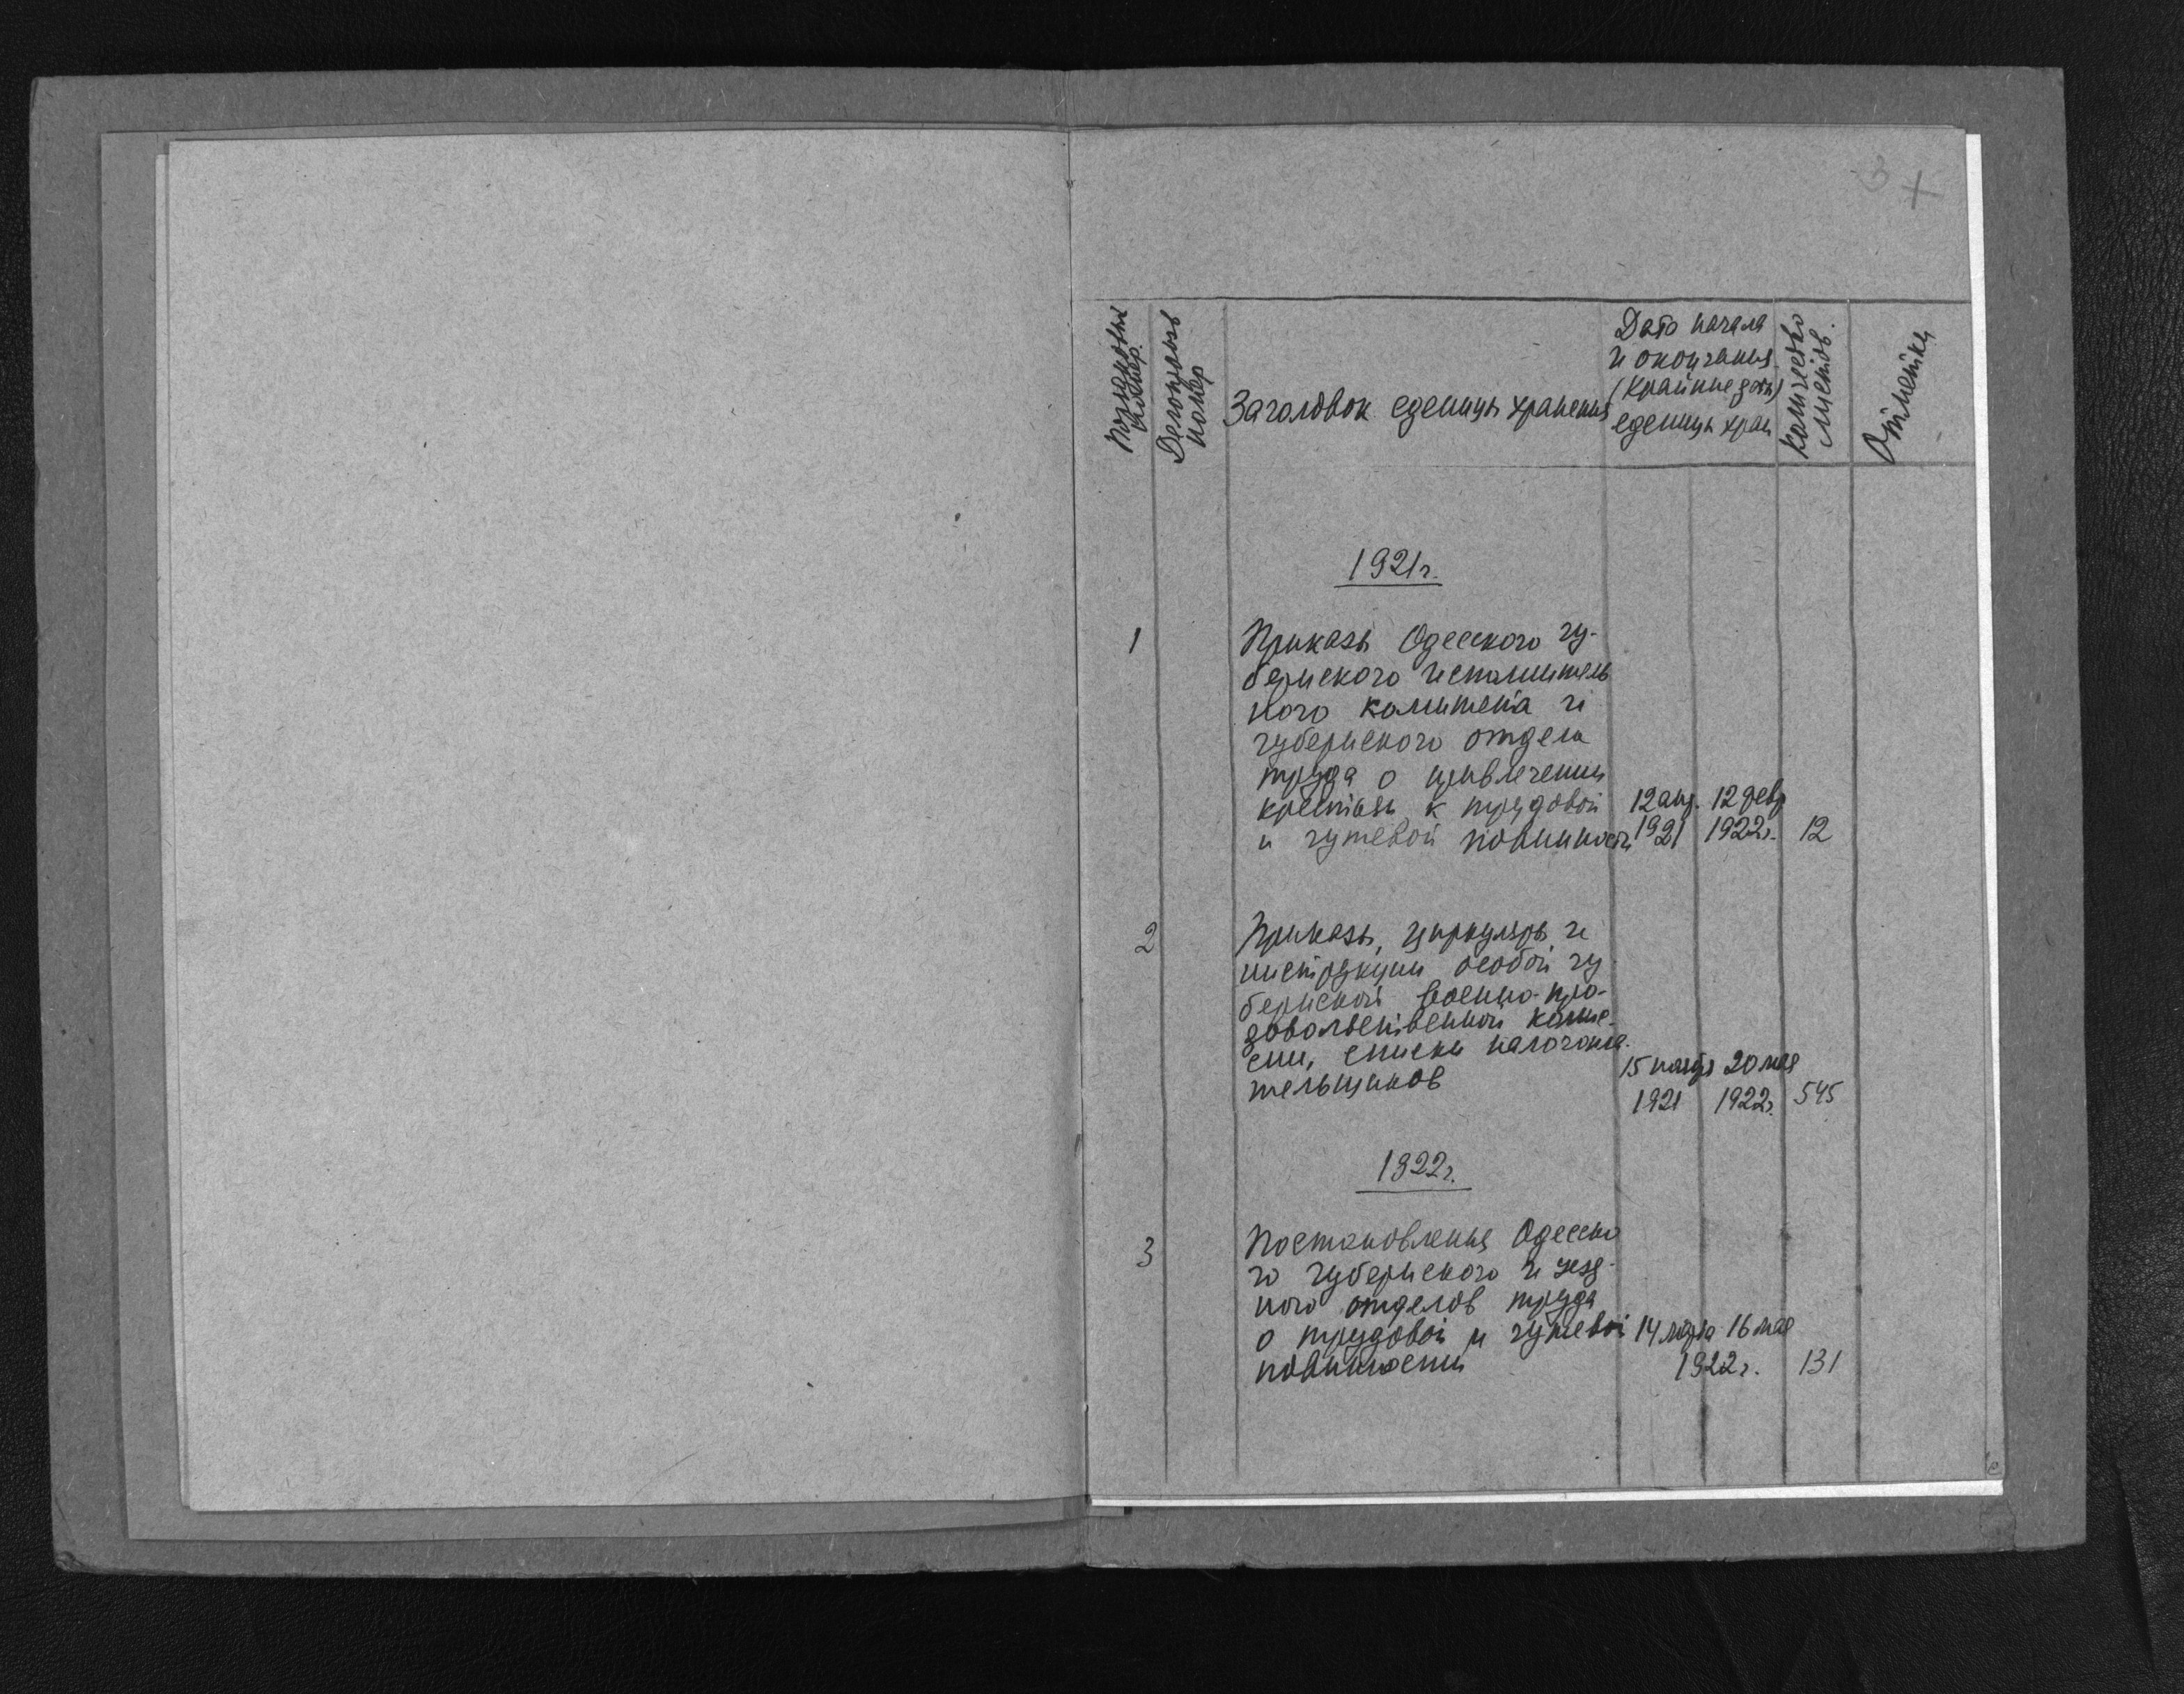 3
Порядковый
номер.
Делопроизв
номер
Заголовок еденицы хранения
Дата начала
и окончания
(крайние даты)
еденицы хран
количество
листов.
Отметки
1921г.
1
Приказы Одесского гу-
бернского исполнитель
ного комитета и
губернского отдела
труда о привлечении
крестьян к трудовой
и гужевой повинности
12 апр.
1921
12 февр
1922г.
12
2
Приказы, циркуляры и
инструкции особой гу
бернской военно-про-
довольственной комис-
сии, списки налогопла-
тельщиков
15 января
1921
20 мая
1922г.
545
1922г.
3
Постановления Одесско
го губернского и уезд-
ного отделов труда
о трудовой и гужевой
повинности
14 марта 16 мая
1922г.
131